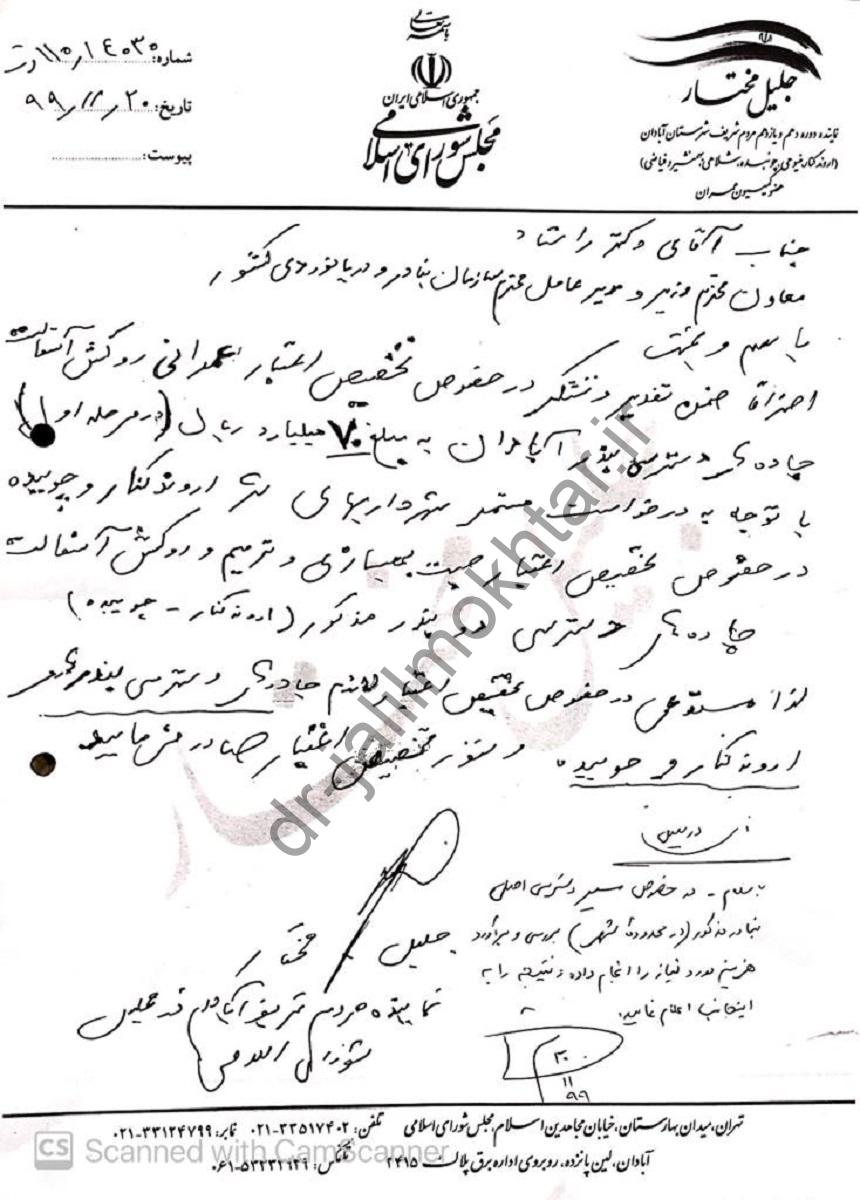 باسمه تعالی
جمهوری اسلامی ایران
مجلس شورای اسلامی
جلیل مختار
نماینده دوره دهم و یازدهم مردم شریف شهرستان آبادان
(اروندکنار، منیوحی، چوئبده، شلامی، بهمنشیر و فیاضی)
عضو کمیسیون عمران
شماره: ۱۱۰/۱۴۰۳۰/ت
تاریخ: ۹۹/۱۱/۲۰
پیوست:
جناب آقای دکتر راستاد
معاون محترم وزیر و مدیر عامل محترم سازمان بنادر و دریانوردی کشور
با سلام و تحیت
احتراماً ضمن تقدیر و تشکر در خصوص تخصیص اعتبار عمرانی روکش آسفالت
جاده‌های دسترسی بندر آبادان به مبلغ ۷۰ میلیارد ریال (در مرحله اول)
با توجه به درخواست مستمر شهرداریهای شهر اروندکنار و چوئبده
در خصوص تخصیص اعتبار جهت بهسازی و ترمیم و روکش آسفالت
جاده‌های دسترسی دو بندر مذکور (اروندکنار - چوئبده)
لذا مستدعی در خصوص تخصیص اعتبار لازم جاده‌های دسترسی بندر
اروندکنار و چوئبده دستور تخصیص اعتبار صادر فرمایید
جلیل مختار
نماینده مردم شریف آبادان در مجلس
شورای اسلامی
با سلام - در خصوص مسیر دسترسی اصلی
بنادر مذکور (در محدوده شهر) بررسی و برآورد
هزینه مورد نیاز را انجام داده و نتیجه را به
اینجانب اعلام نمایید.
۲۰
۱۱
۹۹
تهران، میدان بهارستان، خیابان مجاهدین اسلام، مجلس شورای اسلامی تلفن: ۰۲۱-۳۳۵۱۷۴۰۲ نمابر: ۰۲۱-۳۳۱۲۴۷۹۹
آبادان، لین پانزده، روبروی اداره برق پلاک ۲۴۱۵ تلفکس: ۰۶۱-۵۳۲۳۲۶۴۹
dr-jalilmokhtar.ir
CS Scanned with CamScanner